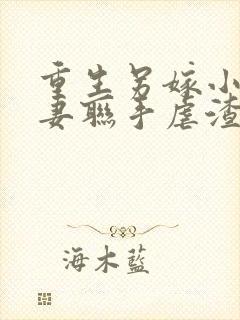 重生另嫁小
妻聯手虐渣
海木藍